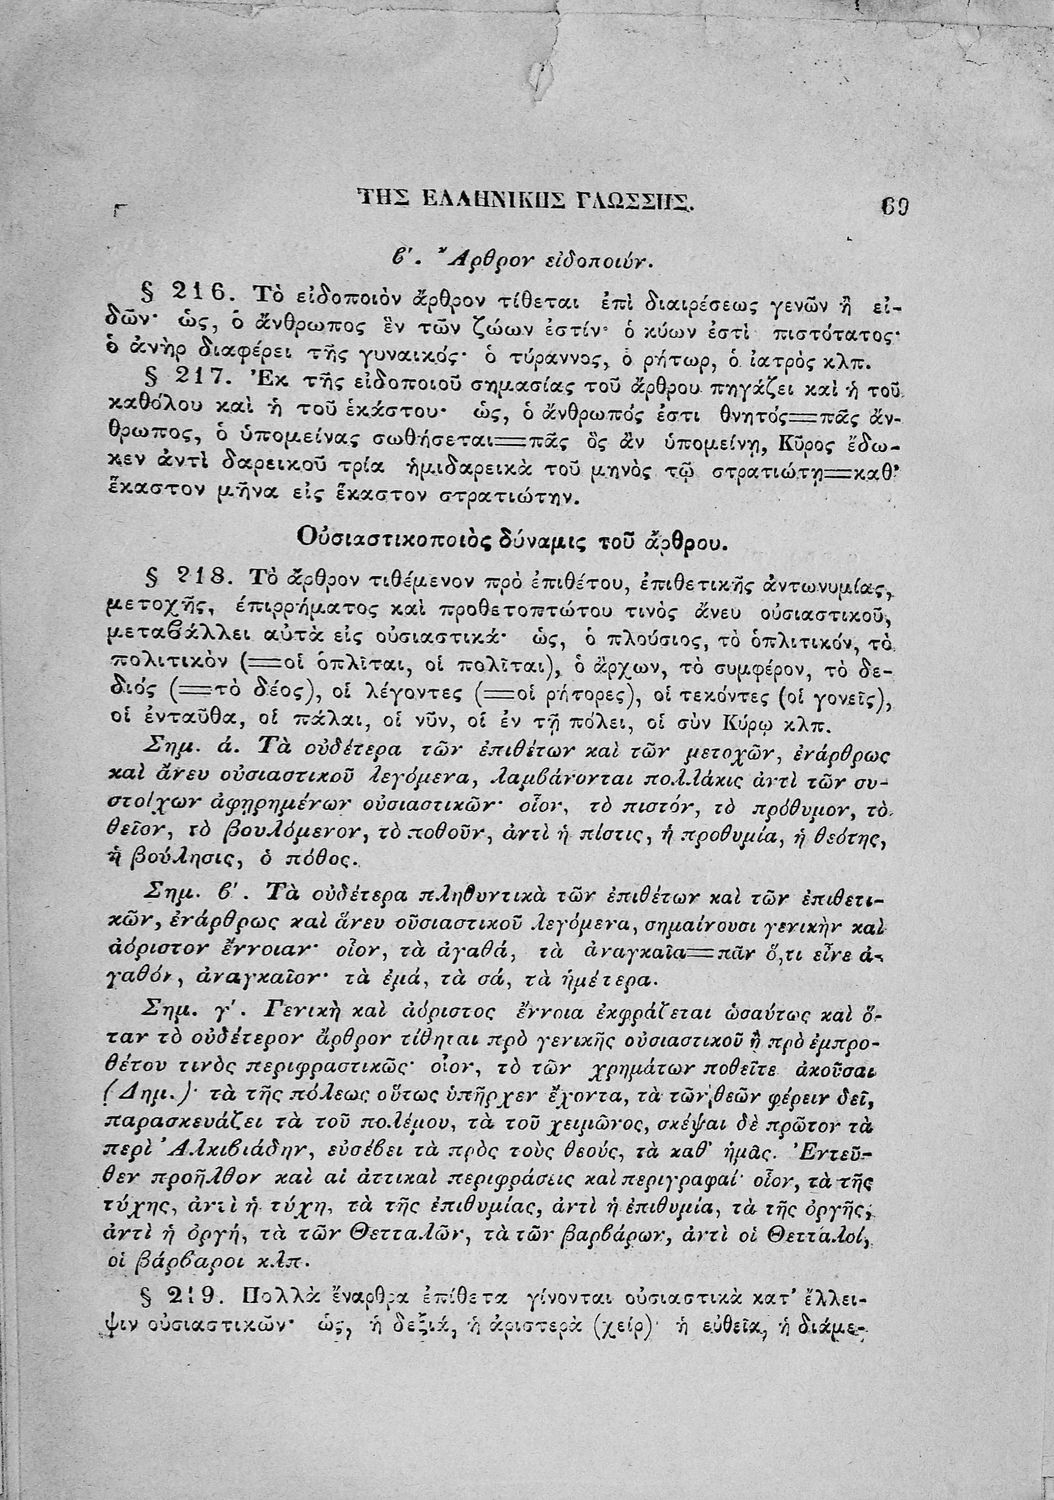 ΤΗΣ ΕΛΛΗΝΙΚΗΣ ΓΛΩΣΣΗΣ. 69
β'. Ἄρθρον εἰδοποιόν.
§ 216. Τὸ εἰδοποιὸν ἄρθρον τίθεται ἐπὶ διαιρέσεως γενῶν ἢ εἰ-
δῶν· ὡς, ὁ ἄνθρωπος ἓν τῶν ζώων ἐστίν· ὁ κύων ἐστὶ πιστότατος·
ὁ ἀνὴρ διαφέρει τῆς γυναικός· ὁ τύραννος, ὁ ρήτωρ, ὁ ἰατρὸς κλπ.
§ 217. Ἐκ τῆς εἰδοποιοῦ σημασίας τοῦ ἄρθρου πηγάζει καὶ ἡ τοῦ
καθόλου καὶ ἡ τοῦ ἑκάστου· ὡς, ὁ ἄνθρωπός ἐστι θνητός=πᾶς ἄν-
θρωπος, ὁ ὑπομείνας σωθήσεται=πᾶς ὃς ἂν ὑπομείνῃ, Κῦρος ἔδω-
κεν ἀντὶ δαρεικοῦ τρία ἡμιδαρεικὰ τοῦ μηνὸς τῷ στρατιώτῃ=καθ'
ἕκαστον μῆνα εἰς ἕκαστον στρατιώτην.
Οὐσιαστικοποιὸς δύναμις τοῦ ἄρθρου.
§ 218. Τὸ ἄρθρον τιθέμενον πρὸ ἐπιθέτου, ἐπιθετικῆς ἀντωνυμίας,
μετοχῆς, ἐπιρρήματος καὶ προθετοπτώτου τινὸς ἄνευ οὐσιαστικοῦ,
μεταβάλλει αὐτὰ εἰς οὐσιαστικά· ὡς, ὁ πλούσιος, τὸ ὁπλιτικόν, τὸ
πολιτικὸν (=οἱ ὁπλῖται, οἱ πολῖται), ὁ ἄρχων, τὸ συμφέρον, τὸ δε-
διός (=τὸ δέος), οἱ λέγοντες (=οἱ ρήτορες), οἱ τεκόντες (οἱ γονεῖς),
οἱ ἐνταῦθα, οἱ πάλαι, οἱ νῦν, οἱ ἐν τῇ πόλει, οἱ σὺν Κύρῳ κλπ.
Σημ. ά. Τὰ οὐδέτερα τῶν ἐπιθέτων καὶ τῶν μετοχῶν, ἐνάρθρως
καὶ ἄνευ οὐσιαστικοῦ λεγόμενα, λαμβάνονται πολλάκις ἀντὶ τῶν συ-
στοίχων ἀφῃρημένων οὐσιαστικῶν· οἷον, τὸ πιστόν, τὸ πρόθυμον, τὸ
θεῖον, τὸ βουλόμενον, τὸ ποθοῦν, ἀντὶ ἡ πίστις, ἡ προθυμία, ἡ θεότης,
ἡ βούλησις, ὁ πόθος.
Σημ. β'. Τὰ οὐδέτερα πληθυντικὰ τῶν ἐπιθέτων καὶ τῶν ἐπιθετι-
κῶν, ἐνάρθρως καὶ ἄνευ οὐσιαστικοῦ λεγόμενα, σημαίνουσι γενικὴν καὶ
ἀόριστον ἔννοιαν· οἷον, τὰ ἀγαθά, τὰ ἀναγκαῖα=πᾶν ὅ,τι εἶνε ἀ-
γαθόν, ἀναγκαῖον· τὰ ἐμά, τὰ σά, τὰ ἡμέτερα.
Σημ. γ'. Γενικὴ καὶ ἀόριστος ἔννοια ἐκφράζεται ὡσαύτως καὶ ὅ-
ταν τὸ οὐδέτερον ἄρθρον τίθηται πρὸ γενικῆς οὐσιαστικοῦ ἢ πρὸ ἐμπρο-
θέτου τινὸς περιφραστικῶς· οἷον, τὸ τῶν χρημάτων ποθεῖτε ἀκοῦσαι
(Δημ.)· τὰ τῆς πόλεως οὕτως ὑπῆρχεν ἔχοντα, τὰ τῶν θεῶν φέρειν δεῖ,
παρασκευάζει τὰ τοῦ πολέμου, τὰ τοῦ χειμῶνος, σκέψαι δὲ πρῶτον τὰ
περὶ Ἀλκιβιάδην, εὐσέβει τὰ πρὸς τοὺς θεούς, τὰ καθ' ἡμᾶς. Ἐντεῦ-
θεν προῆλθον καὶ αἱ ἀττικαὶ περιφράσεις καὶ περιγραφαί· οἷον, τὰ τῆς
τύχης, ἀντὶ ἡ τύχη, τὰ τῆς ἐπιθυμίας, ἀντὶ ἡ ἐπιθυμία, τὰ τῆς ὀργῆς,
ἀντὶ ἡ ὀργή, τὰ τῶν Θετταλῶν, τὰ τῶν βαρβάρων, ἀντὶ οἱ Θετταλοί,
οἱ βάρβαροι κλπ.
§ 219. Πολλὰ ἔναρθρα ἐπίθετα γίνονται οὐσιαστικὰ κατ' ἔλλει-
ψιν οὐσιαστικῶν· ὡς, ἡ δεξιά, ἡ ἀριστερὰ (χείρ)· ἡ εὐθεῖα, ἡ διάμε-